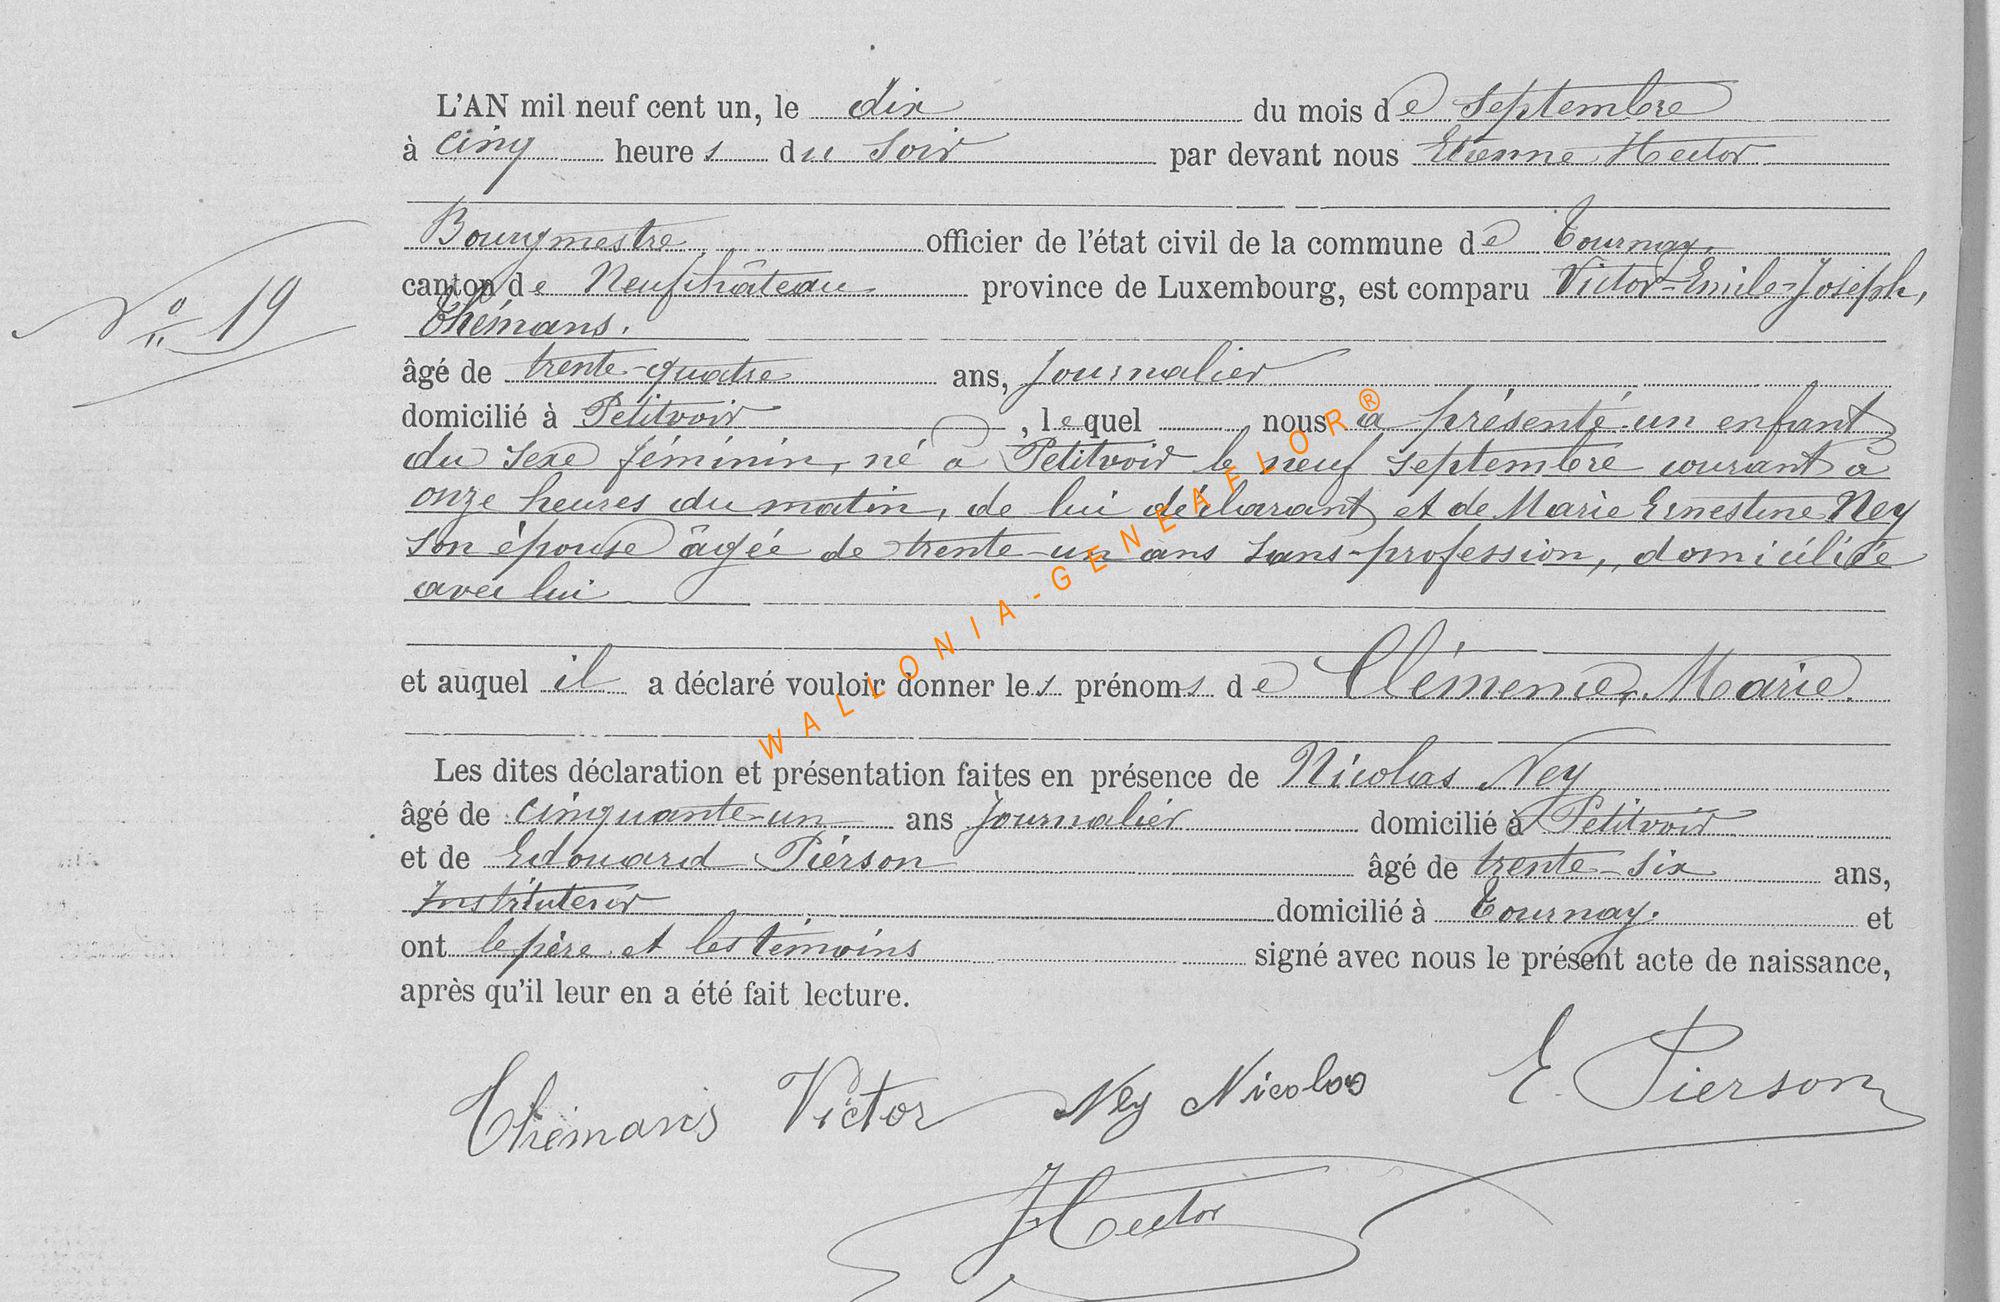 L'AN mil neuf cent un, le dix du mois de septembre
à cinq heures du soir par devant nous Etienne Hector
Bourgmestre officier de l'état civil de la commune de Tournay,
N° 19
canton de Neufchâteau province de Luxembourg, est comparu Victor-Emile-Joseph,
Thémans.
âgé de trente-quatre ans, Journalier
domicilié à Petitvoir, lequel nous a présenté un enfant
du sexe féminin, né à Petitvoir le neuf septembre courant à
onze heures du matin, de lui déclarant et de Marie Ernestine Ney
son épouse âgée de trente-un ans sans-profession, domiciliée
avec lui
et auquel il a déclaré vouloir donner les prénoms de Clémence, Marie.
Les dites déclaration et présentation faites en présence de Nicolas Ney
âgé de cinquante-un ans Journalier domicilié à Petitvoir
et de Edouard Piérson âgé de trente-six ans,
Instituteur domicilié à Tournay. et
ont le père et les témoins signé avec nous le présent acte de naissance,
après qu'il leur en a été fait lecture.
Thémans Victor Ney Nicolas E. Pierson
Hector
WALLONIA-GENEAFLOR®